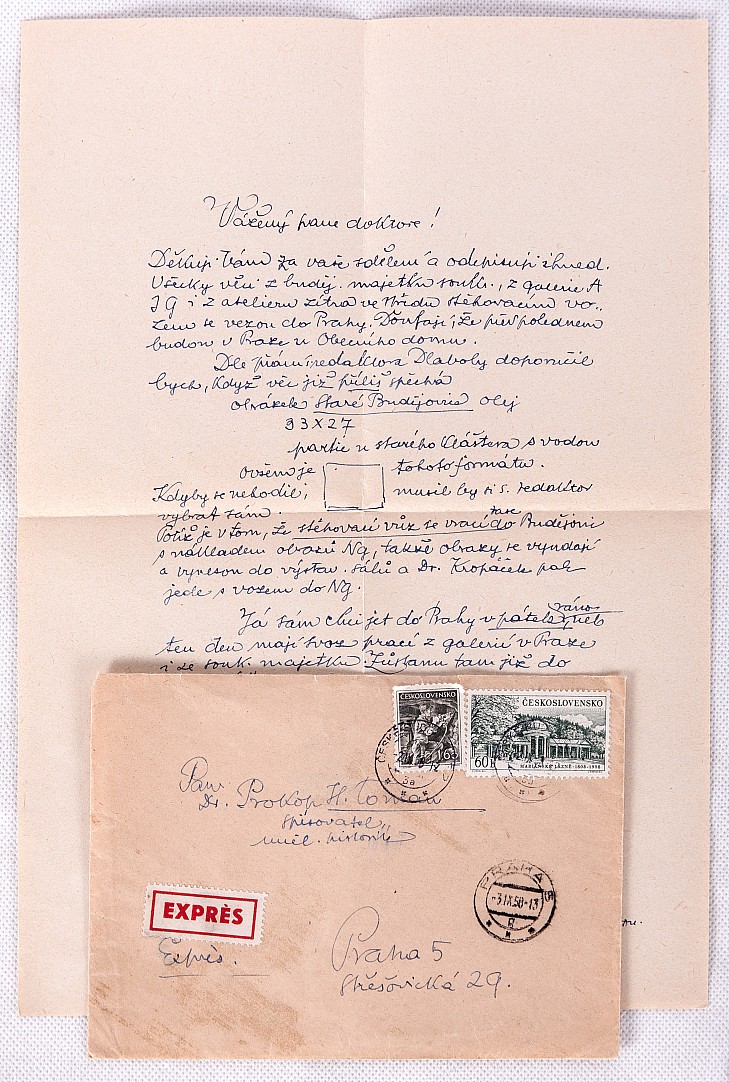 Vážený pane doktore!
Děkuji Vám za vaše sdělení a odepisuji ihned.
Všecky věci z buděj. majetku soukr., z galerie A
J G i z atelieru zítra ve středu stěhovacím vo-
zem se vezou do Prahy. Doufají, že před polednem
budou v Praze u Obecního domu.
Dle přání redaktora Dlabohy doporučil
bych, když věc již příliš spěchá
obrázek Staré Budějovice olej
33X27
partie u starého kláštera s vodou
ovšem je tohoto formátu.
Kdyby se nehodil, musil by si s. redaktor
vybrat sám.
Potíž je v tom, že stěhovací vůz se vrací zase do Budějovic
s nákladem obrazů NG, takže obrazy se vyndají
a vynesou do výstav. sálů a Dr. Kropáček pak
jede s vozem do NG.
Já sám chci jet do Prahy v pátek ráno neb
ten den mají svoz prací z galerií v Praze
i ze souk. majetku. Zůstanu tam již do
ČESKOSLOVENSKO
1,60
ČESKOSLOVENSKO
60 h
MARIÁNSKÉ LÁZNĚ · 1808-1958
ČESKÉ
Pan
Dr. Prokop H. Toman
spisovatel,
uměl. historik
EXPRÈS
Exprès.
PRAHA 5
-3.IX.58-13
g
Praha 5
Střešovická 29.